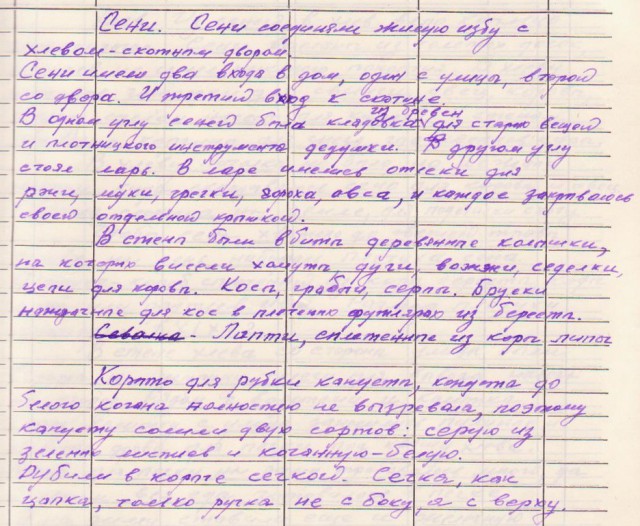 Сени. Сени соединяли жилую избу с
хлевом-скотным двором.
Сени имели два входа в дом, один с улицы, второй
со двора. И третий вход к скотине.
из бревен
В одном углу сеней была кладовка для старых вещей
и плотницкого инструмента дедушки. В другом углу
стоял ларь. В ларе имелись отсеки для
ржи, муки, гречки, гороха, овса, и каждое закрывалось
своей отдельной крышкой.
В стены были вбиты деревянные колышки,
на которых висели хомуты, дуги, вожжи, седелки,
цепи для коровы. Косы, грабли, серпы. Бруски
наждачные для кос в плетеных футлярах из бересты.
Лапти, сплетенные из коры липы
Корыто для рубки капусты, капуста до
белого кочана полностью не вызревала, поэтому
капусту солили двух сортов: серую из
зеленых листьев и кочанную-белую.
Рубили в корыте сечкой. Сечка, как
цапка, только ручка не с боку, а с верху.